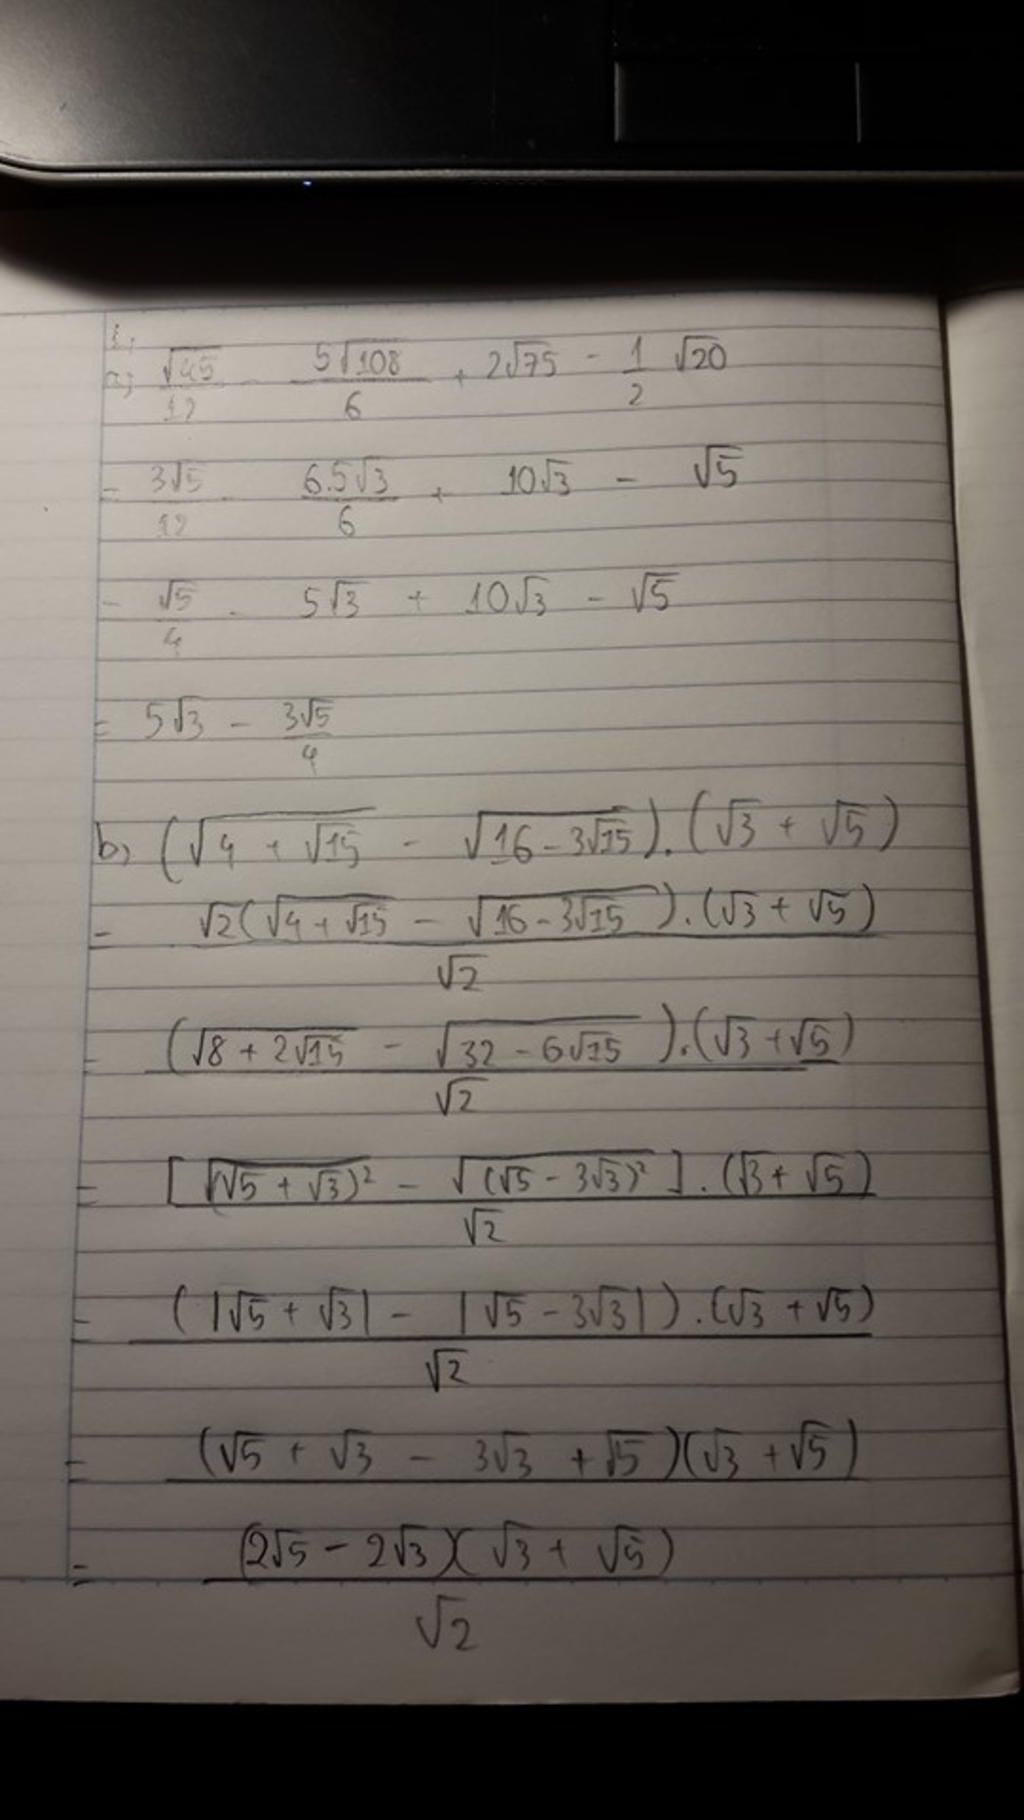 1,
a, √45/12 - 5√108/6 + 2√75 - 1/2 √20
= 3√5/12 - 6.5√3/6 + 10√3 - √5
= √5/4 - 5√3 + 10√3 - √5
= 5√3 - 3√5/4
b, (√(4 + √15) - √(16 - 3√15)).(√3 + √5)
= √2(√(4 + √15) - √(16 - 3√15)).(√3 + √5)/√2
= (√(8 + 2√15) - √(32 - 6√15)).(√3 + √5)/√2
= [√((√5 + √3)²) - √((√5 - 3√3)²)].(√3 + √5)/√2
= (|√5 + √3| - |√5 - 3√3|).(√3 + √5)/√2
= (√5 + √3 - 3√3 + √5)(√3 + √5)
= (2√5 - 2√3)(√3 + √5)/√2